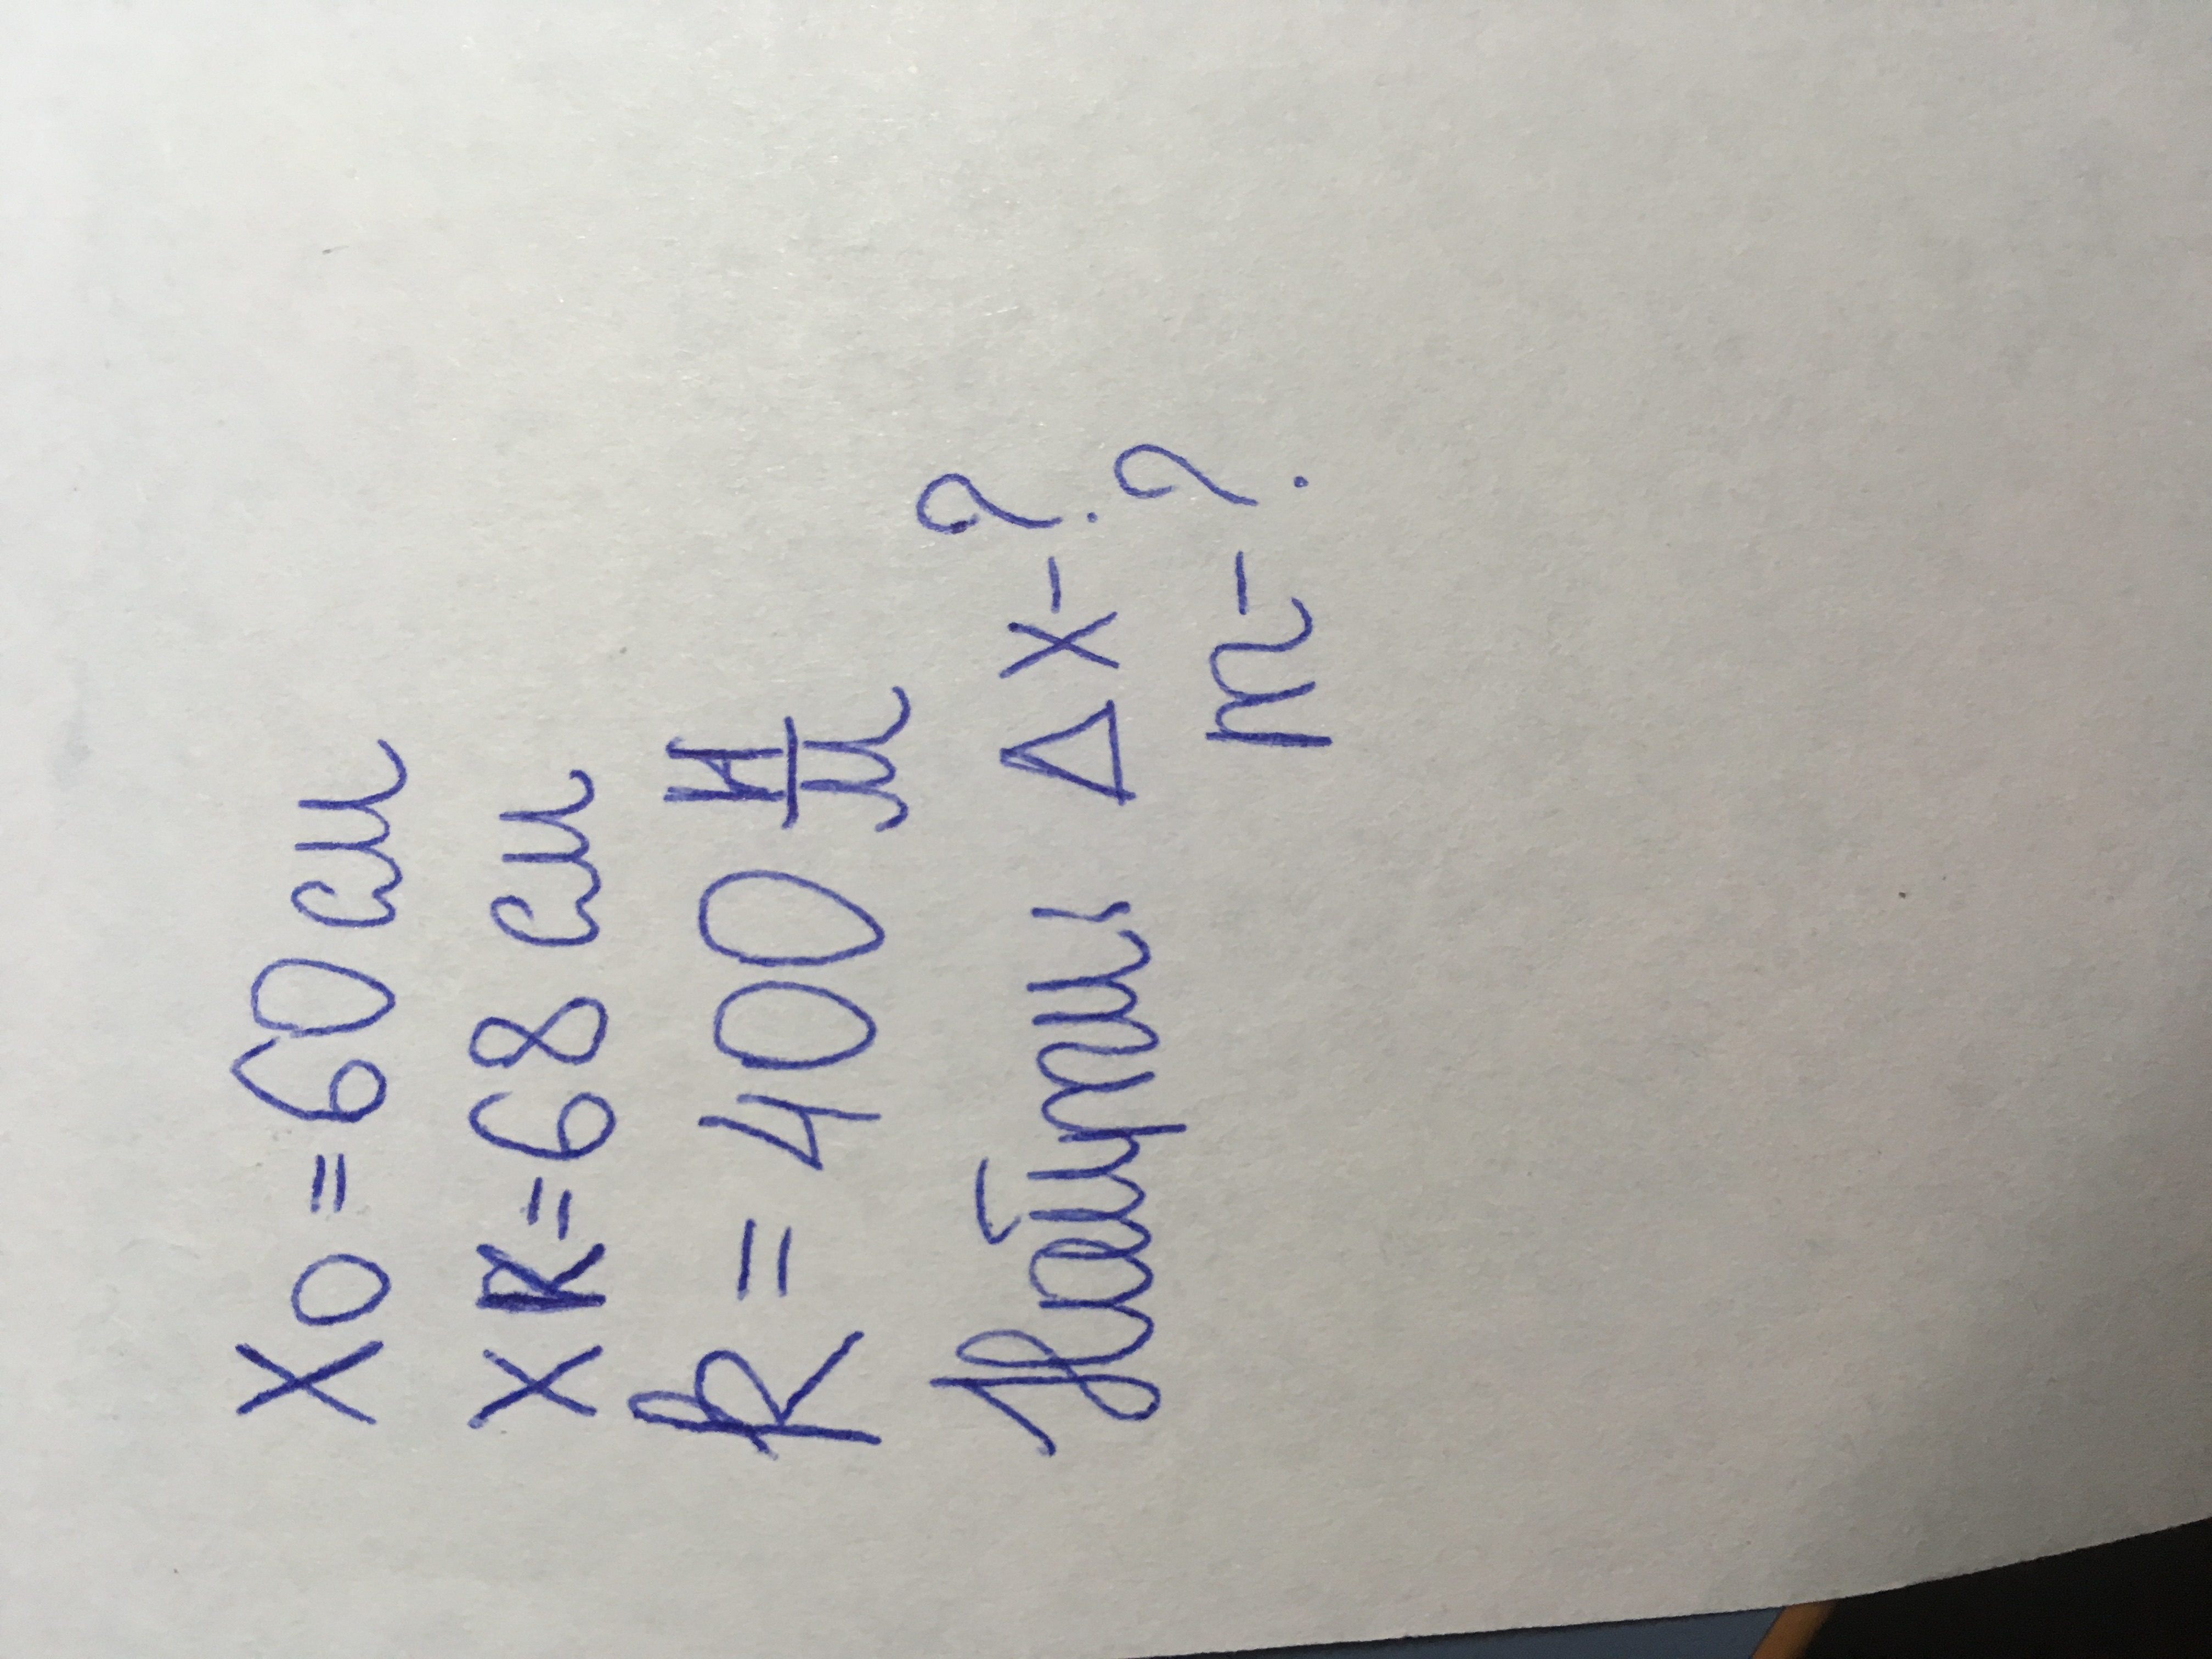 x0=60 см
xк=68 см
k=400 Н/м
Найти Δx-?
m-?